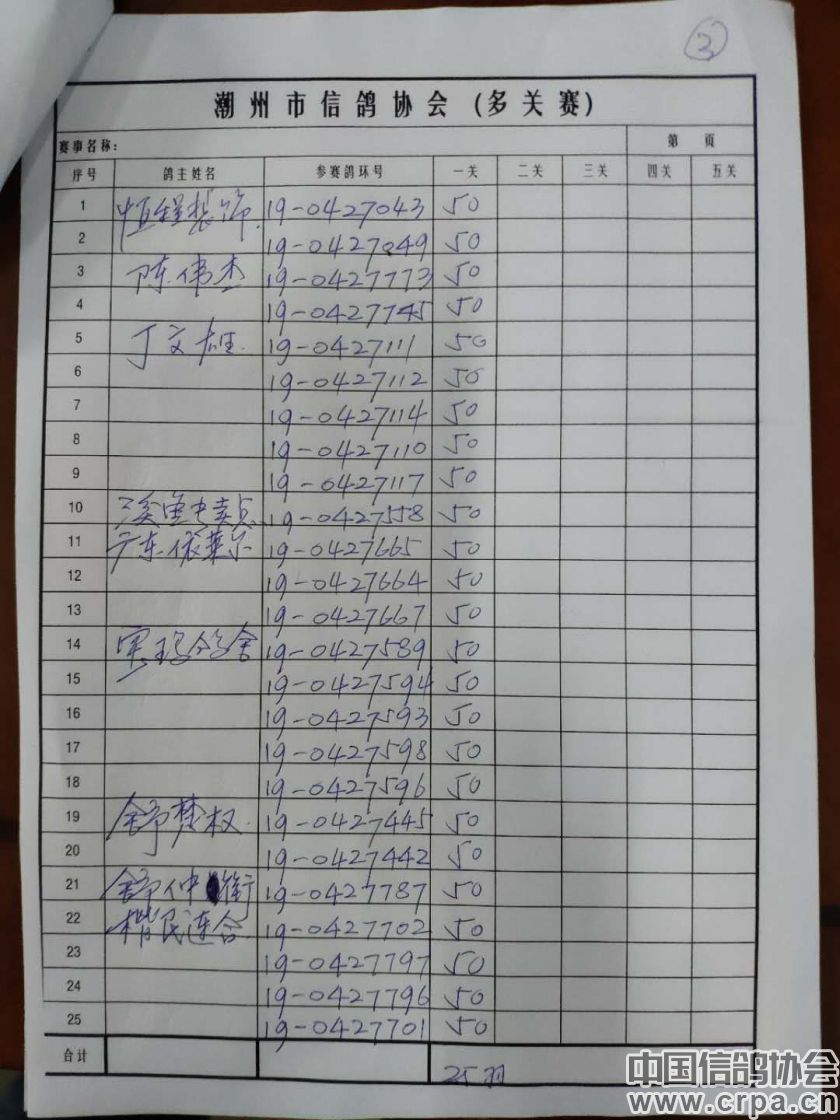 3
潮州市信鸽协会(多关赛)
赛事名称: 第 页
序号 鸽主姓名 参赛鸽环号 一关 二关 三关 四关 五关
1 恒程装饰 19-0427043 50
2 19-0427049 50
3 陈伟杰 19-0427773 50
4 19-0427745 50
5 丁文雄 19-0427111 50
6 19-0427112 50
7 19-0427114 50
8 19-0427110 50
9 19-0427117 50
10 19-0427558 50
11 广东依莱尔 19-0427665 50
12 19-0427664 50
13 19-0427667 50
14 鸽舍 19-0427589 50
15 19-0427594 50
16 19-0427593 50
17 19-0427598 50
18 19-0427596 50
19 舒楚权 19-0427445 50
20 19-0427442 50
21 舒仲衔 19-0427787 50
22 楷民连合 19-0427702 50
23 19-0427797 50
24 19-0427796 50
25 19-0427701 50
合计 25羽
中国信鸽协会
www.crpa.cn